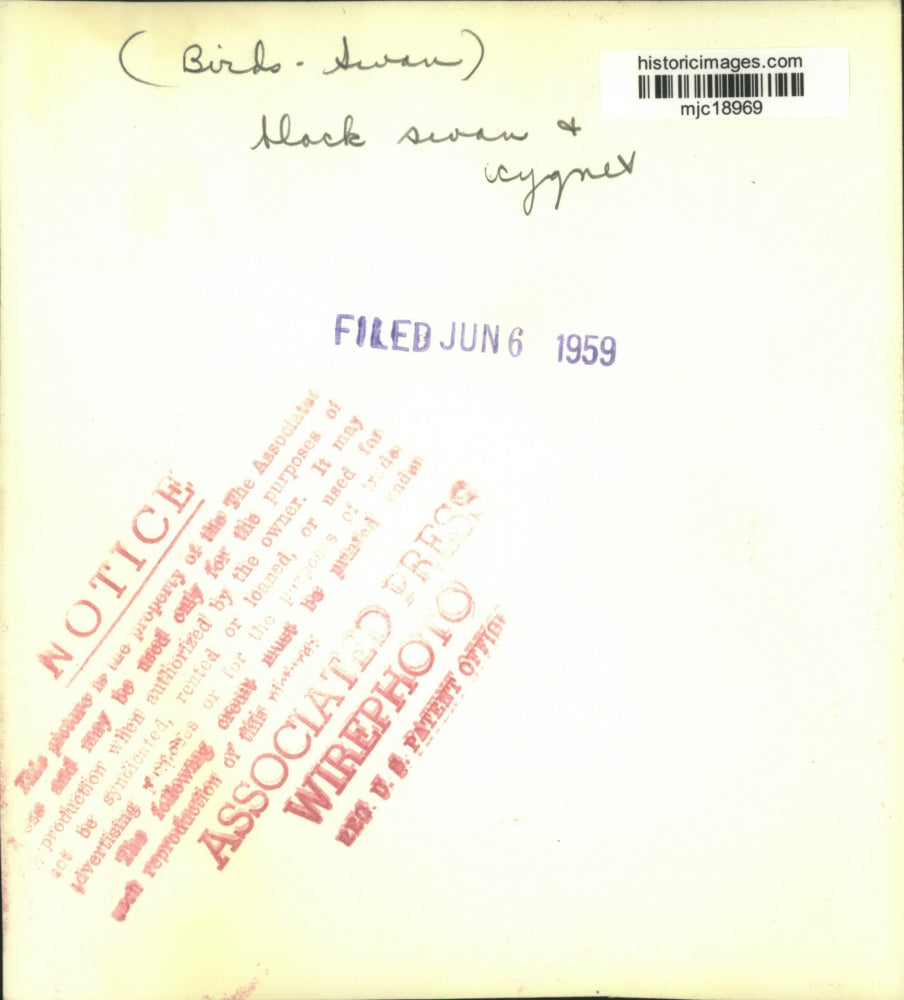 (Birds - Swan)
historicimages.com
mjc18969
black swan &
cygnet
FILED JUN 6 1959
NOTICE
This picture is the property of the The Associated
use and may be used only for the purposes of
production when authorized by the owner. It may
not be syndicated, rented or loaned, or used for
advertising purposes or for the purposes of trade
The following credit must be printed under
each reproduction of this picture:
ASSOCIATED PRESS
WIREPHOTO
REG. U. S. PATENT OFFICE